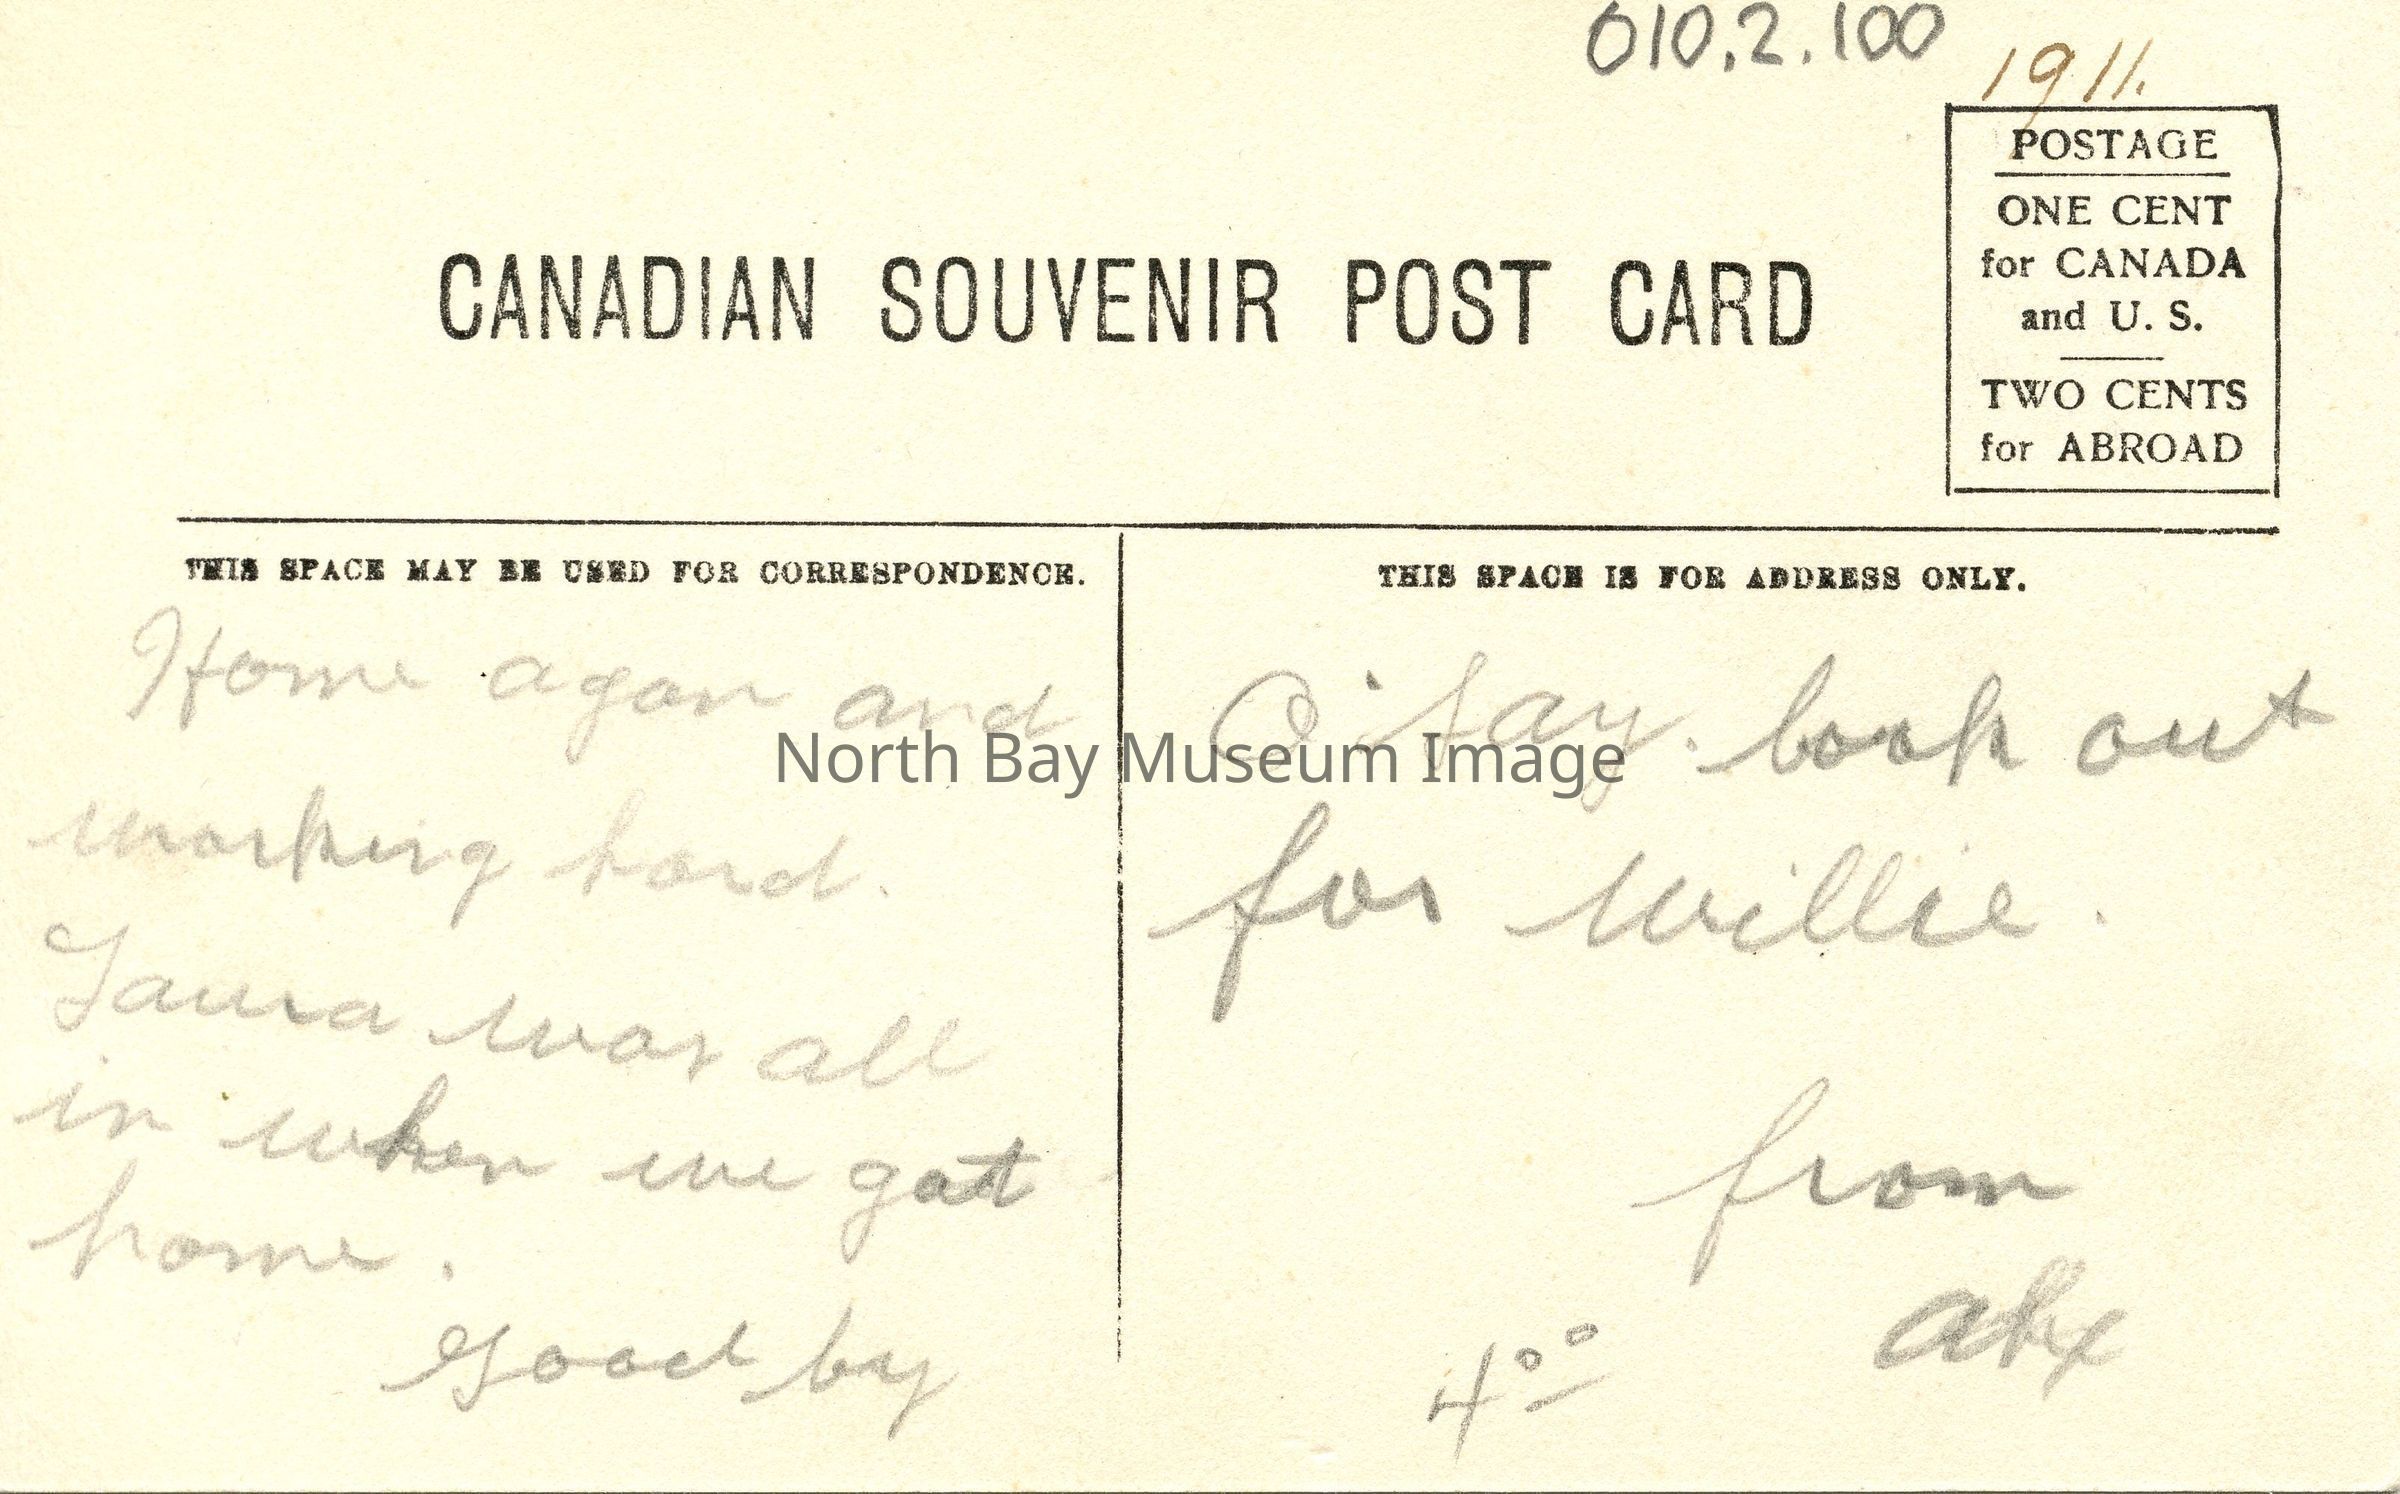 010.2.100
1911.
POSTAGE
ONE CENT
for CANADA
and U. S.
TWO CENTS
for ABROAD
CANADIAN SOUVENIR POST CARD
THIS SPACE MAY BE USED FOR CORRESPONDENCE.
Home agan and
working hard.
Laura was all
in when we gott
home.
Good by
THIS SPACE IS FOR ADDRESS ONLY.
O. say. look out
for Willie.
from
alex
4 00
North Bay Museum Image